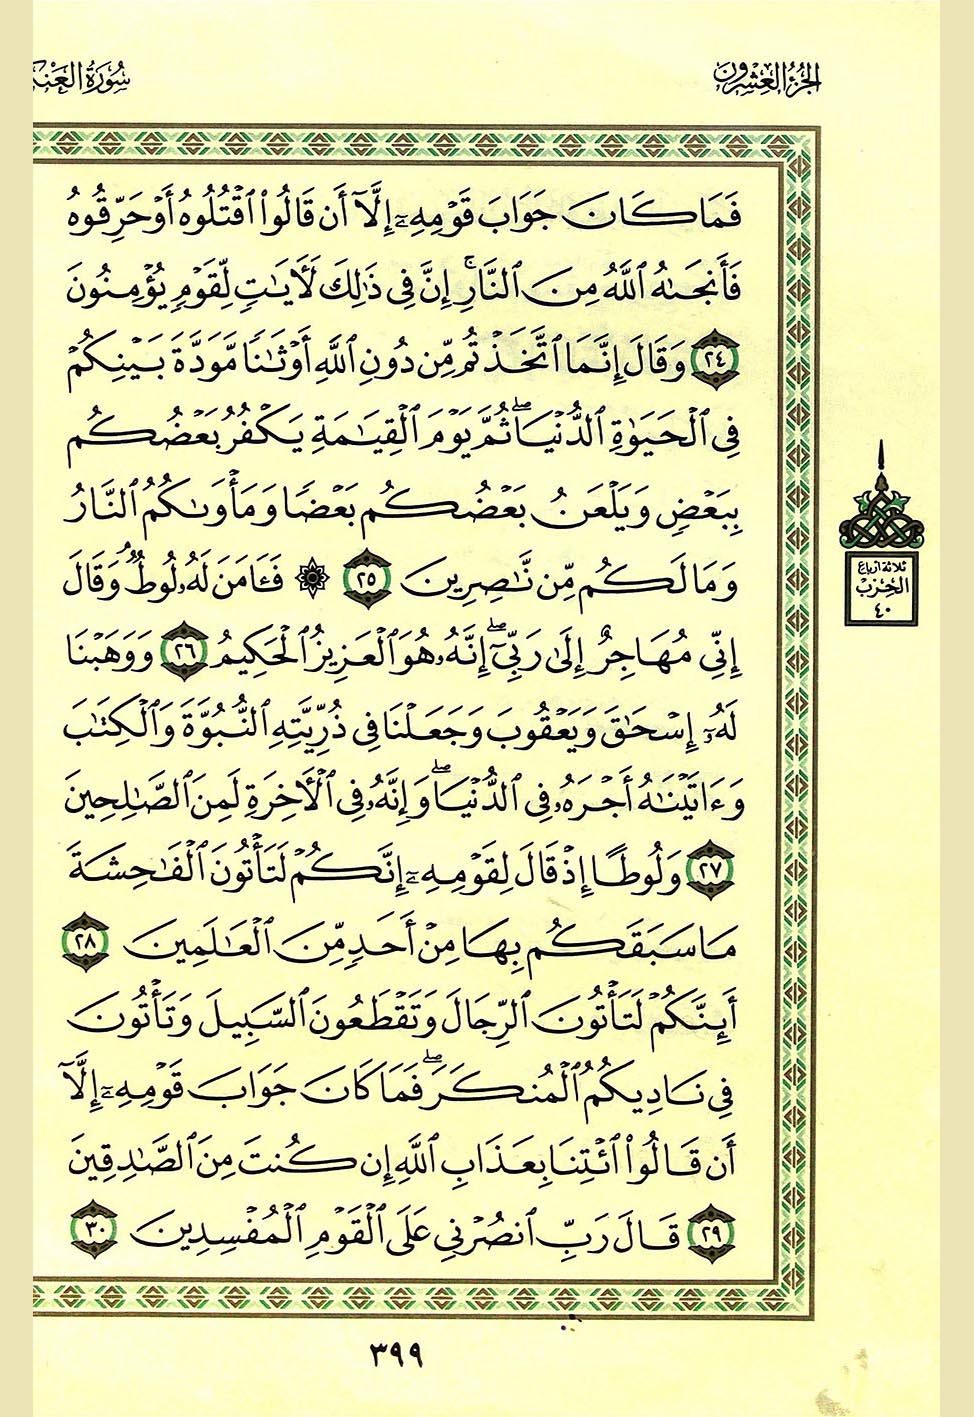 الجزء العشرون
سورة العنك
فَمَا كَانَ جَوَابَ قَوْمِهِۦٓ إِلَّآ أَن قَالُوا۟ ٱقْتُلُوهُ أَوْ حَرِّقُوهُ
فَأَنجَىٰهُ ٱللَّهُ مِنَ ٱلنَّارِ ۚ إِنَّ فِى ذَٰلِكَ لَـَٔايَـٰتٍ لِّقَوْمٍ يُؤْمِنُونَ
٢٤ وَقَالَ إِنَّمَا ٱتَّخَذْتُم مِّن دُونِ ٱللَّهِ أَوْثَـٰنًا مَّوَدَّةَ بَيْنِكُمْ
فِى ٱلْحَيَوٰةِ ٱلدُّنْيَا ۖ ثُمَّ يَوْمَ ٱلْقِيَـٰمَةِ يَكْفُرُ بَعْضُكُم
بِبَعْضٍ وَيَلْعَنُ بَعْضُكُم بَعْضًا وَمَأْوَىٰكُمُ ٱلنَّارُ
وَمَا لَكُم مِّن نَّـٰصِرِينَ ٢٥ ۞ فَـَٔامَنَ لَهُۥ لُوطٌ ۘ وَقَالَ
إِنِّى مُهَاجِرٌ إِلَىٰ رَبِّىٓ ۖ إِنَّهُۥ هُوَ ٱلْعَزِيزُ ٱلْحَكِيمُ ٢٦ وَوَهَبْنَا
لَهُۥٓ إِسْحَـٰقَ وَيَعْقُوبَ وَجَعَلْنَا فِى ذُرِّيَّتِهِ ٱلنُّبُوَّةَ وَٱلْكِتَـٰبَ
وَءَاتَيْنَـٰهُ أَجْرَهُۥ فِى ٱلدُّنْيَا ۖ وَإِنَّهُۥ فِى ٱلْـَٔاخِرَةِ لَمِنَ ٱلصَّـٰلِحِينَ
٢٧ وَلُوطًا إِذْ قَالَ لِقَوْمِهِۦٓ إِنَّكُمْ لَتَأْتُونَ ٱلْفَـٰحِشَةَ
مَا سَبَقَكُم بِهَا مِنْ أَحَدٍ مِّنَ ٱلْعَـٰلَمِينَ ٢٨
أَئِنَّكُمْ لَتَأْتُونَ ٱلرِّجَالَ وَتَقْطَعُونَ ٱلسَّبِيلَ وَتَأْتُونَ
فِى نَادِيكُمُ ٱلْمُنكَرَ ۖ فَمَا كَانَ جَوَابَ قَوْمِهِۦٓ إِلَّآ
أَن قَالُوا۟ ٱئْتِنَا بِعَذَابِ ٱللَّهِ إِن كُنتَ مِنَ ٱلصَّـٰدِقِينَ
٢٩ قَالَ رَبِّ ٱنصُرْنِى عَلَى ٱلْقَوْمِ ٱلْمُفْسِدِينَ ٣٠
ثلاثة أرباع
الحزب
٤٠
٣٩٩